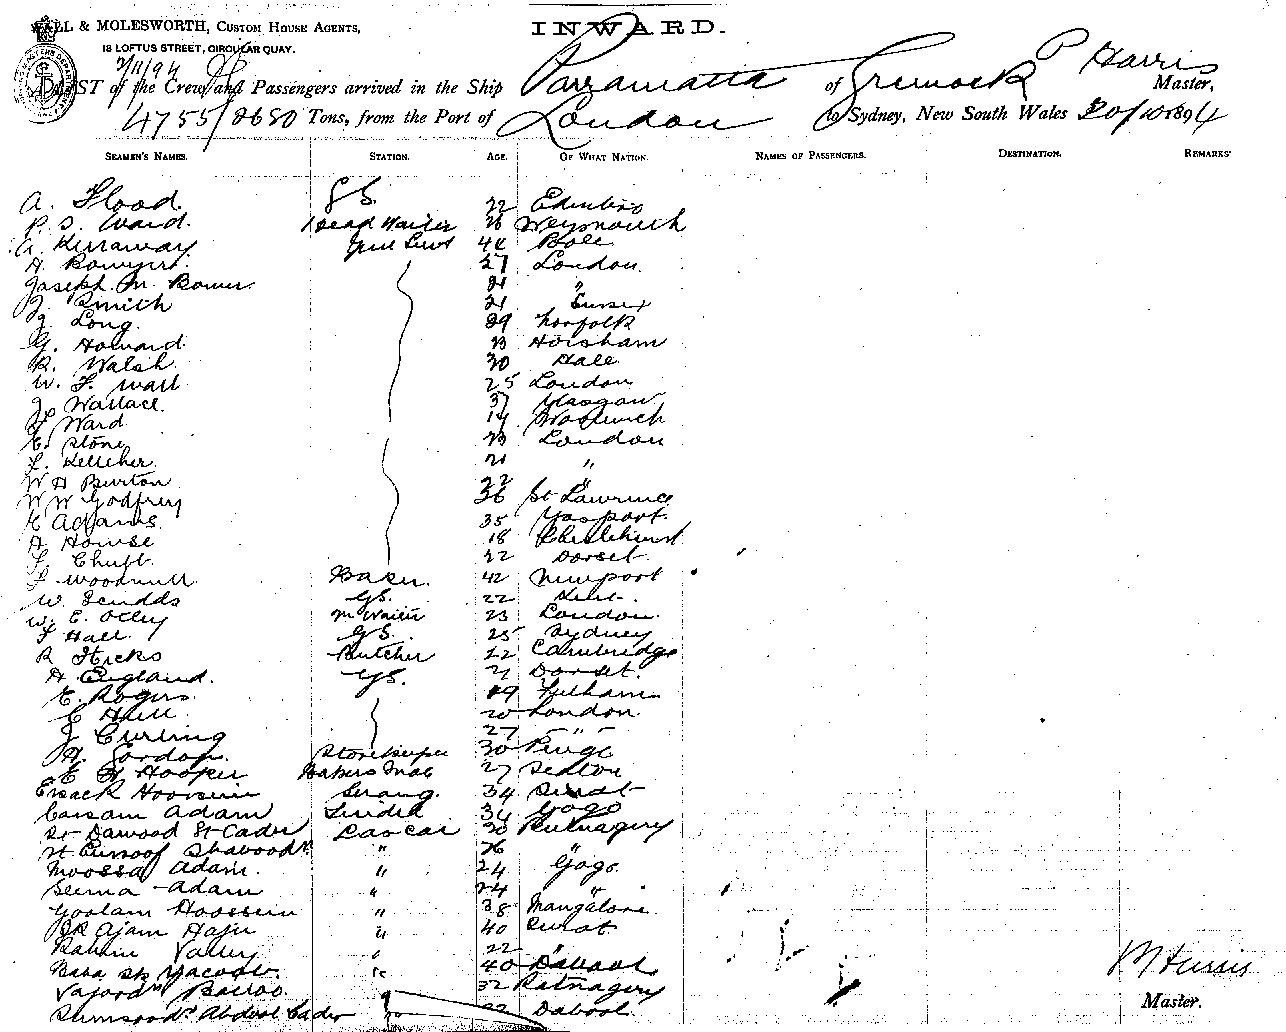 WALL & MOLESWORTH, CUSTOM HOUSE AGENTS,
INWARD.
18 LOFTUS STREET, CIRCULAR QUAY.
LIST of the Crew and Passengers arrived in the Ship Parramatta of Greenock P Harris Master,
4755/2680 Tons, from the Port of London to Sydney, New South Wales 20/10 1894
SEAMEN'S NAMES. STATION. AGE. OF WHAT NATION. NAMES OF PASSENGERS. DESTINATION. REMARKS
A. Flood. GS. 22 Edinbro
P. S. Ward. Head Waiter 26 Weymouth
A. Kerraway Genl Servt 44 Poole
H. 27 London.
Joseph M. Bower 21 "
J. Smith 21 Sussex
J. Long. 29 Norfolk
G. Howard. 23 Horsham
R. Walsh 30
W. F. Wall 25 London
J. Wallace. 37 Glasgow
F Ward 19 Woolwich
E. Stone 23 London
F. Kelleher. 21 "
W H Burton 22 "
W W Godfrey 36 St Lawrence
E Adams. 35 Gosport.
A House 18 Chislehurst
F. Chubb. 22 Dorset.
Baker. 42 Newport
W. GS. 22 Kent.
W. E. Otley M Waiter 23 London.
F Hall. GS. 25 Sydney
R Hicks Butcher 22 Cambridge
H England. GS. 21 Dorset.
E. Rogers. 19 Fulham
E Hill 20 London
J Curling 27 "
A. Gordon. Storekeeper 30 Penge
E H Hooper Bakers Mate 27
Esack Hoossein Serang. 34 Surat
Cassam Adam Tindel 34 Gogo
St Dawood St Cader Lascar 30 Rutnagery
" 26 "
Moossa Adam. " 24 Gogo.
Seema Adam " 24 "
Goolam Hoossein " 38 Mangalore
Ajam Haju " 40 Surat
Rahim Valley " 22 "
Baba Sk Yacoob. " 40 Dabool
32 Ratnagery
Abdool Cader 22 Dabool.
P Harris
Master.